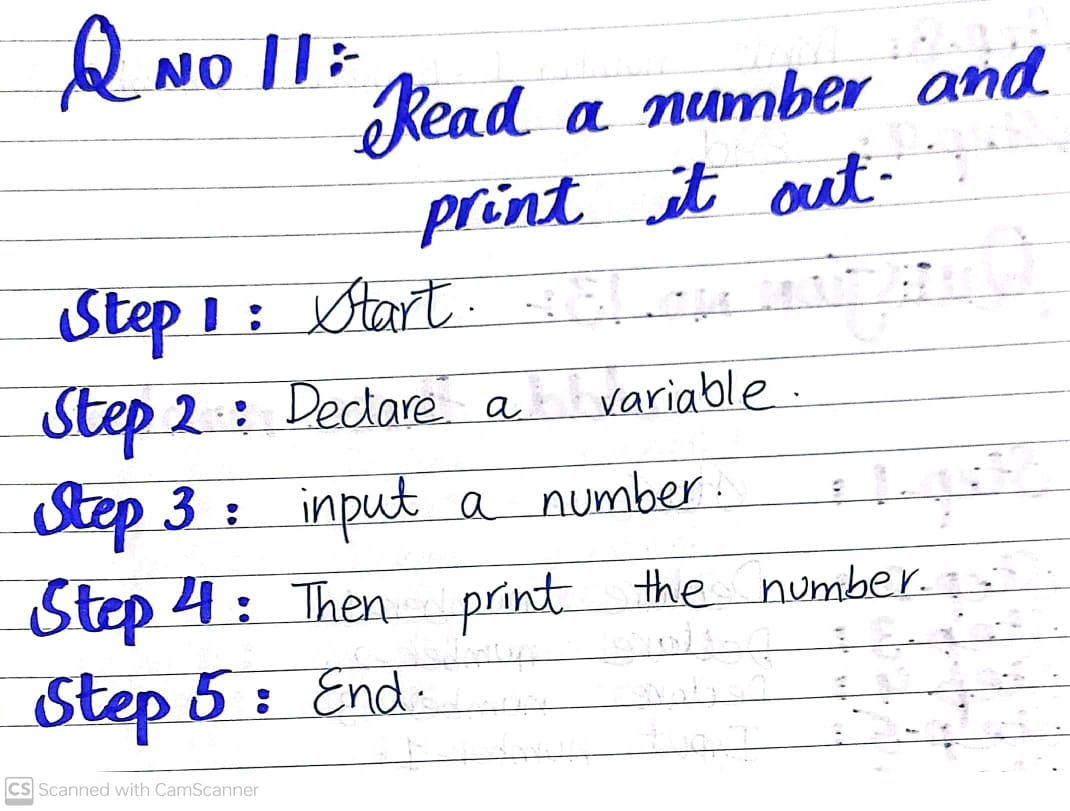 Q NO 11:-
Read a number and
print it out.
Step 1 : Start.
Step 2 : Declare a variable.
Step 3 : input a number.
Step 4 : Then print the number.
Step 5 : End.
CS Scanned with CamScanner